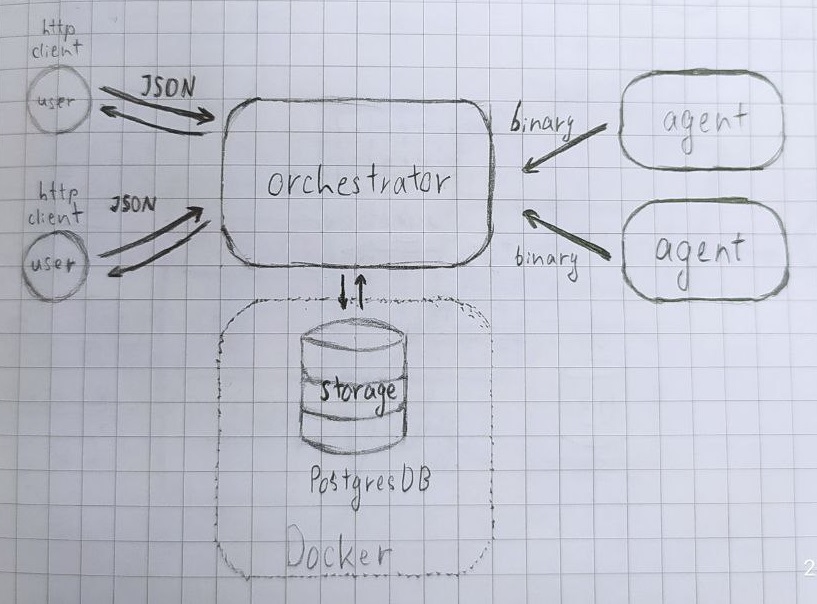 http
client
user
JSON
http
client
user
JSON
orchestrator
binary
agent
binary
agent
storage
PostgresDB
Docker
2